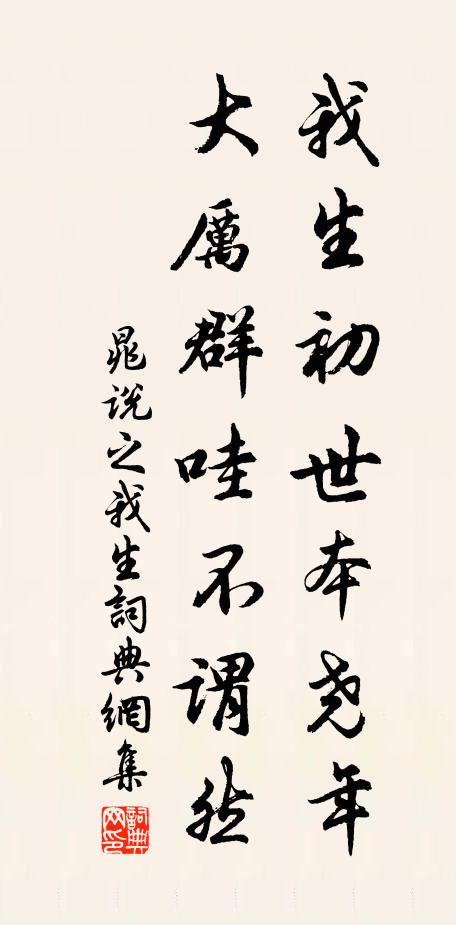 我生初世本尧年
大厲群哇不謂然
晁说之我生詞典網集
詞典網印